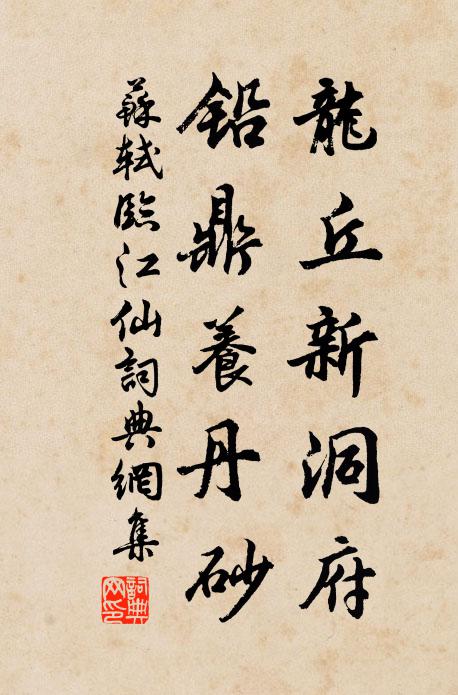 龍丘新洞府
鉛鼎養丹砂
蘇軾臨江仙詞典網集
詞典網印